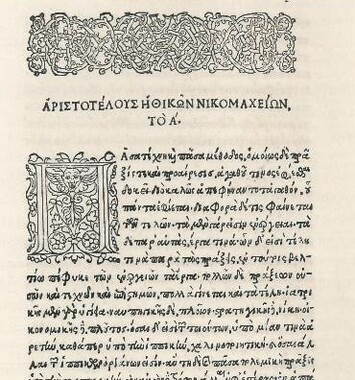 ἈΡΙΣΤΟΤΈΛΟΥΣ ἨΘΙΚΩ͂Ν ΝΙΚΟΜΑΧΕΊΩΝ,
ΤῸ Α΄.
Πᾶσα τέχνη καὶ πᾶσα μέθοδος, ὁμοίως δὲ πρᾶ
ξίς τε καὶ προαίρεσις, ἀγαθοῦ τινὸς ἐφίεσθαι
δοκεῖ. διὸ καλῶς ἀπεφήναντο τἀγαθὸν, οὗ
πάντα ἐφίεται. διαφορὰ δέ τις φαίνεται
τῶν τελῶν. τὰ μὲν γάρ εἰσιν ἐνέργειαι. τὰ
δὲ παρ' αὐτὰς, ἔργα τινά. ὧν δ' εἰσὶ τέλη
τινὰ παρὰ τὰς πράξεις, ἐν τούτοις βελ
τίω πέφυκε τῶν ἐνεργειῶν τὰ ἔργα. πολλῶν δὲ πράξεων οὐ
σῶν καὶ τεχνῶν καὶ ἐπιστημῶν, πολλὰ γίνεται καὶ τὰ τέλη. ἰατρι
κῆς μὲν γὰρ ὑγίεια. ναυπηγικῆς δὲ, πλοῖον. στρατηγικῆς δὲ, νίκη. οἰ
κονομικῆς δὲ, πλοῦτος. ὅσαι δ' εἰσὶ τῶν τοιούτων, ὑπὸ μίαν τινὰ ἀ
ρετὴν, καθάπερ ὑπὸ τὴν ἱππικὴν, χαλινοποιητικὴ, καὶ ὅσαι ἄλ
λαι τῶν ἱππικῶν ὀργάνων εἰσὶν. αὕτη δὲ καὶ πᾶσα πολεμικὴ πρᾶξις